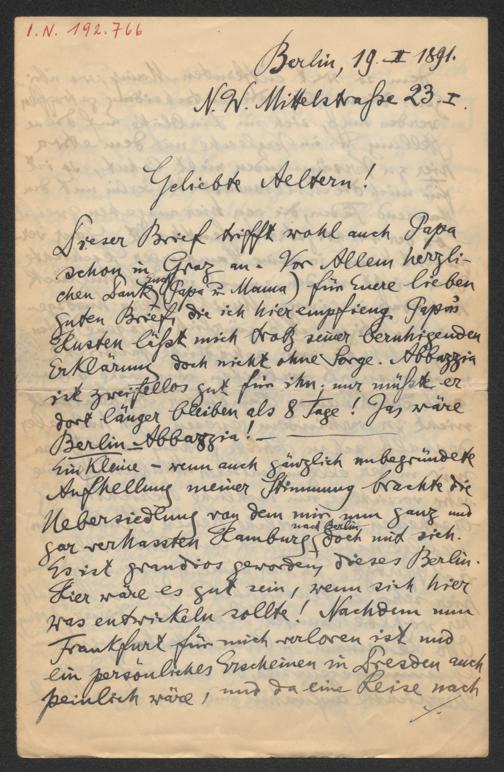 I.N. 192.766
Berlin, 19. II 1891.
N.W. Mittelstraße 23. I.
Geliebte Aeltern!
Dieser Brief trifft wohl auch Papa
schon in Graz an. Vor Allem herzli-
chen Dank (Papa u Mama) für Euere lieben
guten Briefe, die ich hier empfieng. Papa's
Husten läßt mich trotz seiner beruhigenden
Erklärung doch nicht ohne Sorge. Abbazzia
ist zweifellos gut für ihn; nur müßte er
dort länger bleiben als 8 Tage! Das wäre
Berlin-Abbazzia! –
Ein kleine – wenn auch gänzlich unbegründete
Aufhellung meiner Stimmung brachte die
Uebersiedlung von dem mir nun ganz und
gar verhassten Hamburg nach Berlin doch mit sich.
Es ist grandios geworden, dieses Berlin.
Hier wäre es gut sein, wenn sich hier
was entwickeln sollte! Nachdem nun
Frankfurt für mich verloren ist und
ein persönliches Erscheinen in Dresden auch
peinlich wäre, und da eine Reise nach